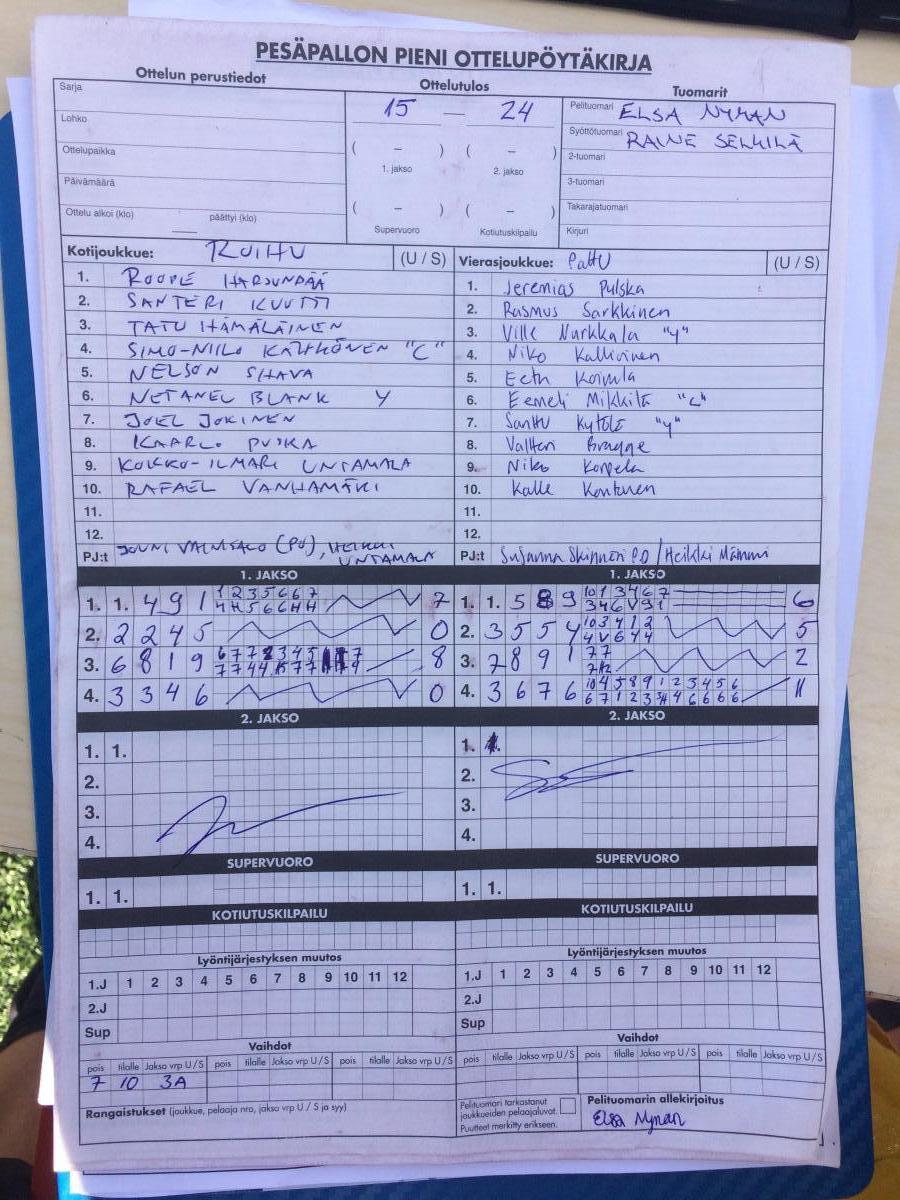 PESÄPALLON PIENI OTTELUPÖYTÄKIRJA
Ottelun perustiedot
Ottelutulos
Tuomarit
Sarja
Lohko
Ottelupaikka
Päivämäärä
Ottelu alkoi (klo) päättyi (klo)
15 — 24
( – ) ( – )
1. jakso 2. jakso
( – ) ( – )
Supervuoro Kotiutuskilpailu
Pelituomari ELSA NYMAN
Syöttötuomari RAINE
2-tuomari
3-tuomari
Takarajatuomari
Kirjuri
Kotijoukkue: ROIHU (U / S)
1. ROOPE HARJUNPÄÄ
2. SANTERI KUUTTI
3. TATU HÄMÄLÄINEN
4. SIMO-NIILO KÄHKÖNEN "C"
5. NELSON SHAVA
6. NETANEL BLANK Y
7. JOEL JOKINEN
8. KAARLO PUSKA
9. KOKKO-ILMARI UNTAMALA
10. RAFAEL VANHAMÄKI
11.
12.
PJ:t JOUNI (PJ), HEIKKI UNTAMALA
Vierasjoukkue: PattU (U / S)
1. Jeremias Pulska
2. Rasmus Sarkkinen
3. Ville Nurkkala "Y"
4. Niko Kallioinen
5. Eetu Koivula
6. Eemeli Mikkilä "C"
7. Santtu Kytölä "Y"
8. Valtteri Bragge
9. Niko Korpela
10. Kalle Kontunen
11.
12.
PJ:t Susanna PJ / Heikki
1. JAKSO
1. 1. 4 9 1 7
2. 2 2 4 5 0
3. 6 8 1 9 8
4. 3 3 4 6 0
1. JAKSO
1. 1. 5 8 9 6
2. 3 5 5 4 5
3. 7 8 9 1 2
4. 3 6 7 6 11
2. JAKSO
1. 1.
2.
3.
4.
2. JAKSO
1. 1.
2.
3.
4.
SUPERVUORO
1. 1.
SUPERVUORO
1. 1.
KOTIUTUSKILPAILU
KOTIUTUSKILPAILU
Lyöntijärjestyksen muutos
1.J 1 2 3 4 5 6 7 8 9 10 11 12
2.J
Sup
Lyöntijärjestyksen muutos
1.J 1 2 3 4 5 6 7 8 9 10 11 12
2.J
Sup
Vaihdot
pois tilalle Jakso vrp U / S pois tilalle Jakso vrp U / S pois tilalle Jakso vrp U / S
7 10 3A
Vaihdot
pois tilalle Jakso vrp U / S pois tilalle Jakso vrp U / S pois tilalle Jakso vrp U / S
Rangaistukset (joukkue, pelaaja nro, jakso vrp U / S ja syy)
Pelituomari tarkastanut
joukkueiden pelaajaluvat.
Puutteet merkitty erikseen.
Pelituomarin allekirjoitus
Elsa Nyman